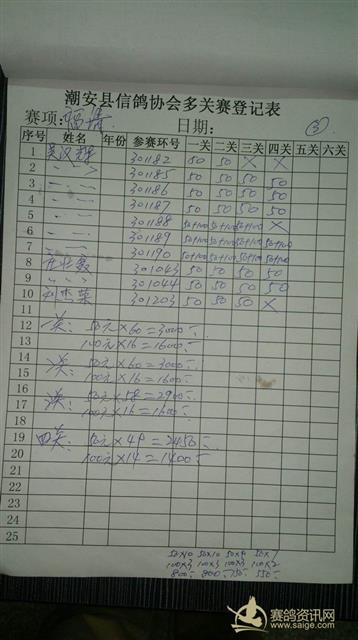 潮安县信鸽协会多关赛登记表
赛项: 福清 日期: ③
序号 姓名 年份 参赛环号 一关 二关 三关 四关 五关 六关
1 吴汉辉 301182 50 50 × ×
2 〃 〃 301185 50 50 50 50
3 〃 〃 301186 50 50 50 50
4 〃 〃 301187 50 50 50 50
5 〃 〃 301188 50+100 50+100 50+100 ×
6 〃 〃 301189 50+100 50+100 50+100 50+100
7 〃 〃 301190 50+100 50+100 50+100 50+100
8 301043 50 50 50 50
9 〃 〃 301044 50 50 50 50
10 301203 50 50 50 ×
11
12 一关: 50元×60=3000
13 100元×16=1600
14
15 二关: 50元×60=3000
16 100元×16=1600
17 三关: 50元×58=2900
18 100元×16=1600
19 四关: 50元×49=2450
20 100元×14=1400
21
22
23
24
25
50×10 50×10 50×9 50×7
100×3 100×3 100×3 100×2
800 800 750 550
赛鸽资讯网
www.saige.com